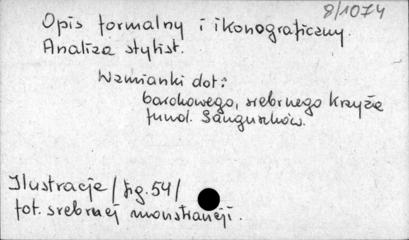 8/1074
Opis formalny i ikonograficzny.
Analiza stylist.
Wzmianki dot:
barokowego, srebrnego Krzyża
fund. Sanguszków.
Ilustracje /fig.54/
fot. srebrnej monstrancji.